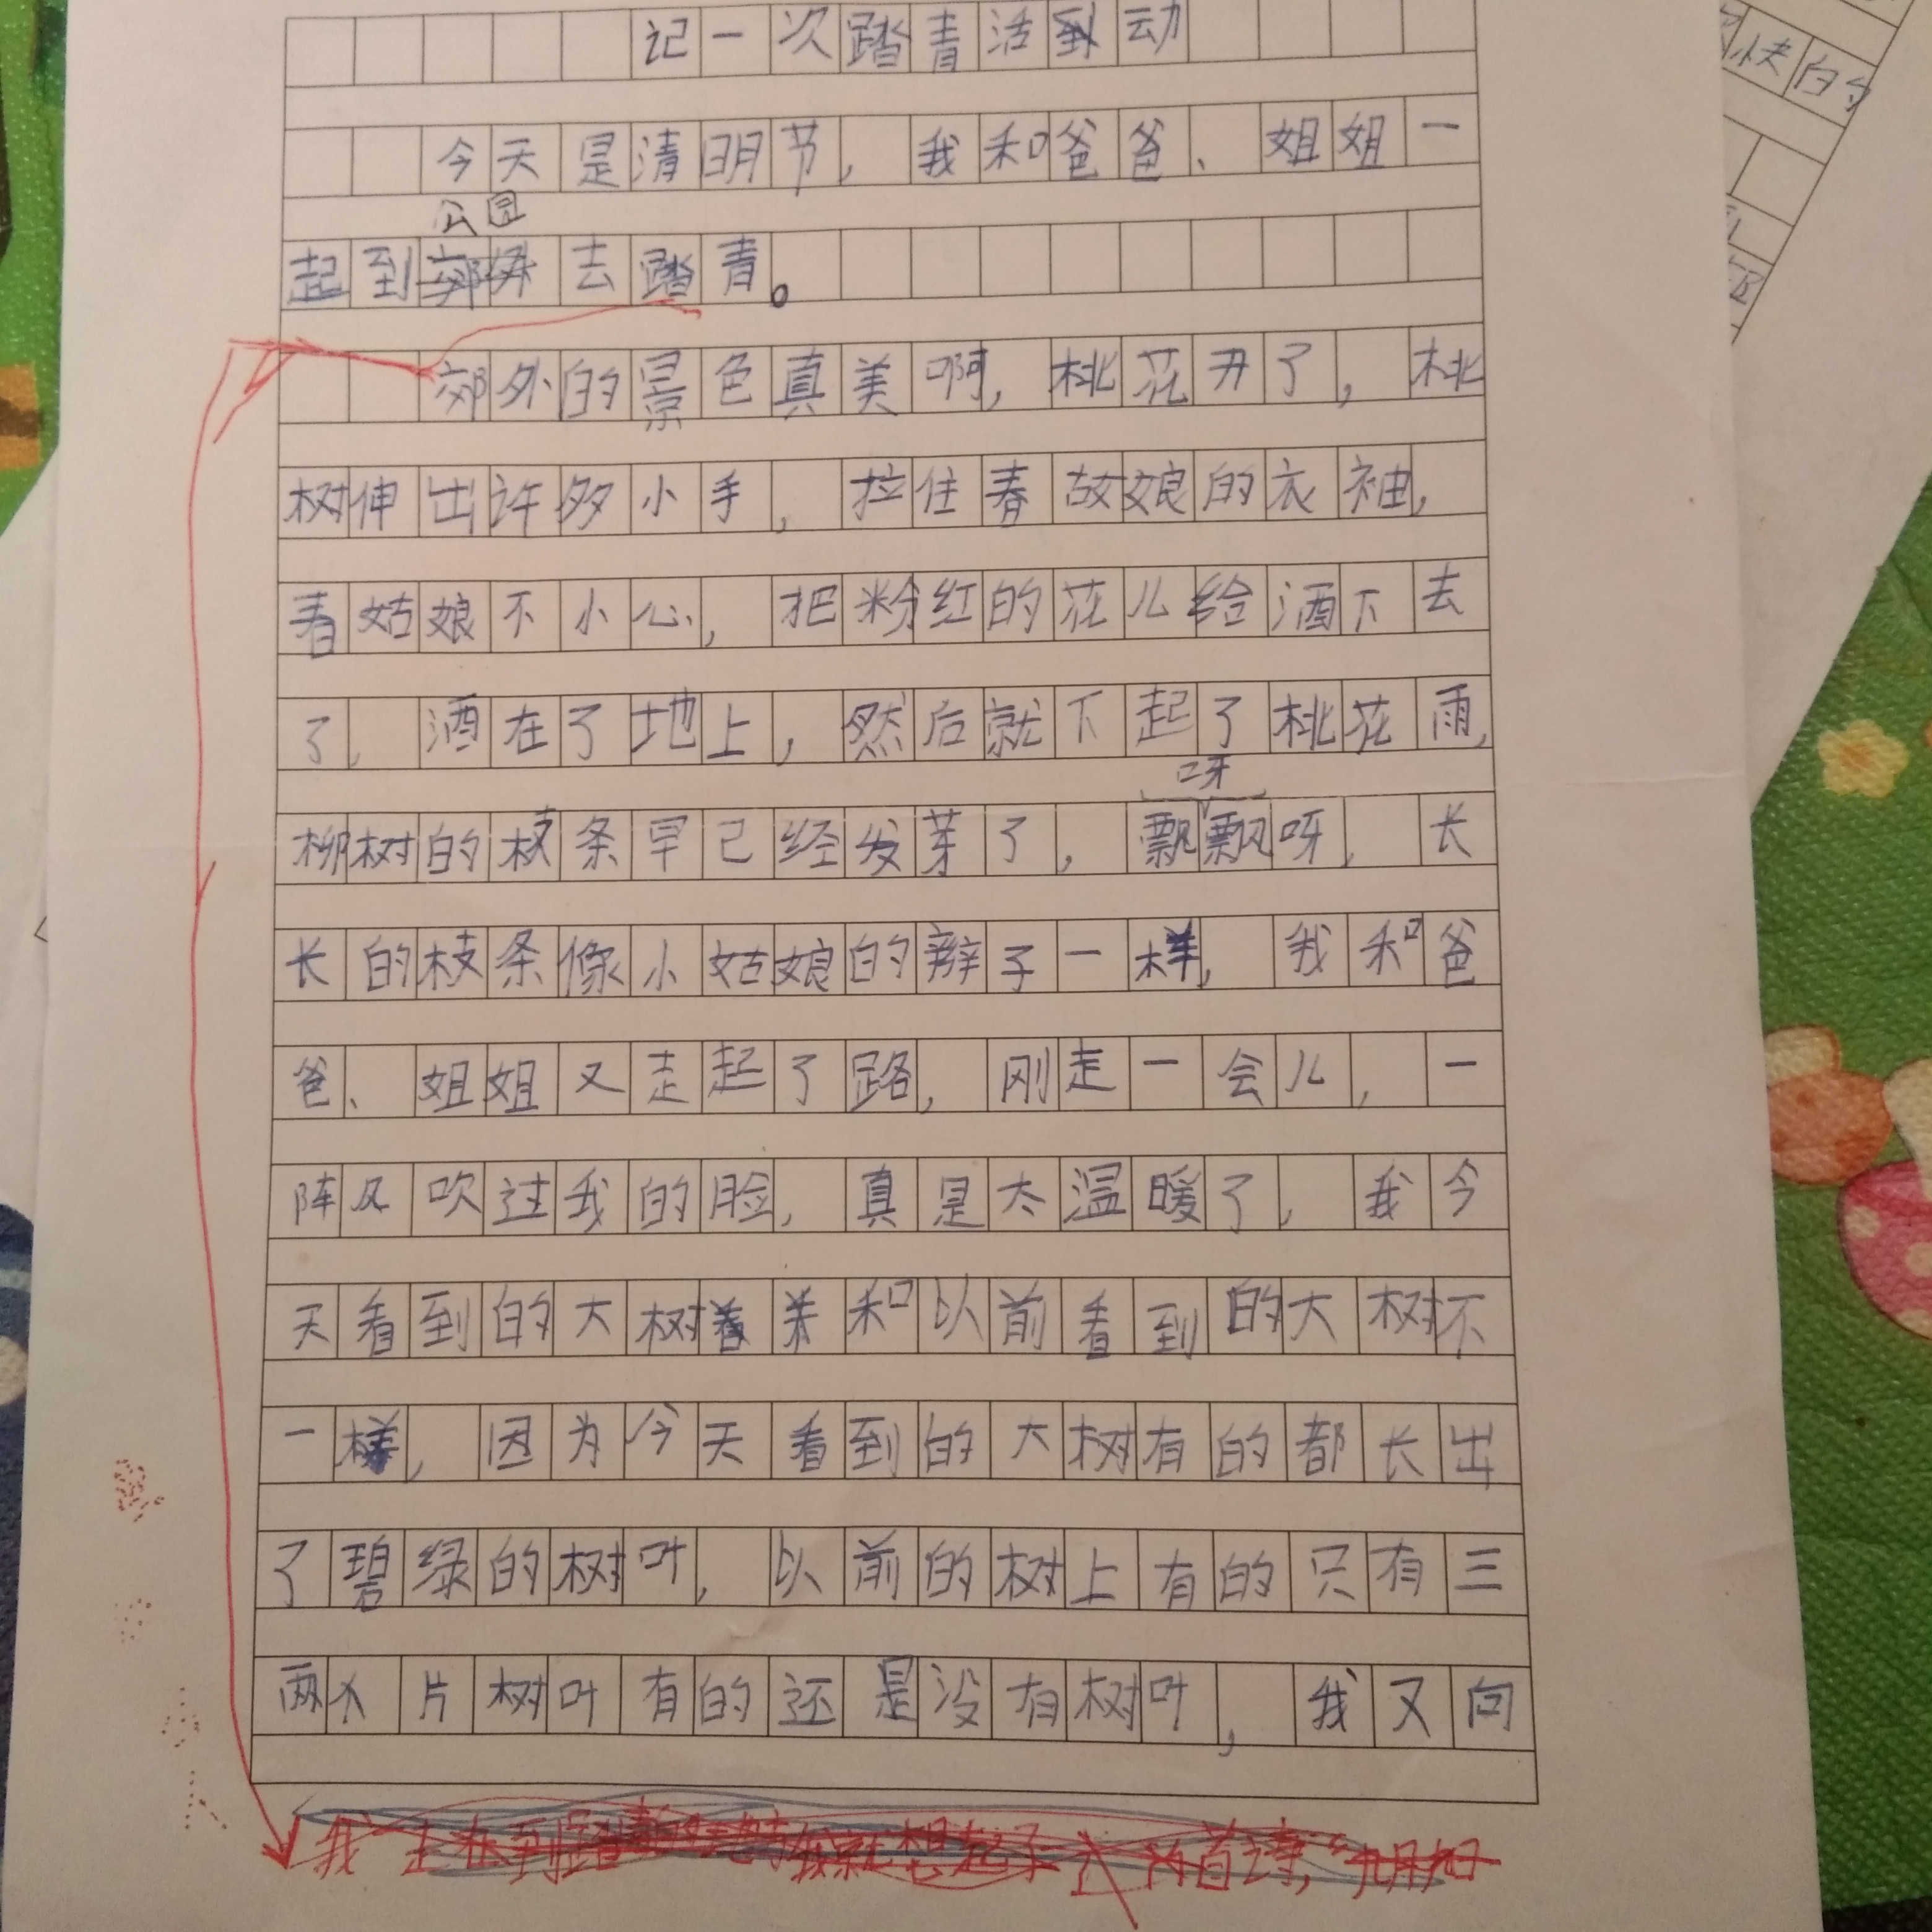 记一次踏青活动
今天是清明节，我和爸爸、姐姐一
公园
起到郊外去踏青。
郊外的景色真美啊，桃花开了，桃
树伸出许多小手，拉住春故娘的衣袖，
春姑娘不小心，把粉红的花儿给酒下去
了，酒在了地上，然后就下起了桃花雨，
呀
柳树的枝条早已经发芽了，飘飘呀，长
长的枝条像小姑娘的辫子一样，我和爸
爸、姐姐又走起了路，刚走一会儿，一
阵风吹过我的脸，真是太温暖了，我今
天看到的大树着美和以前看到的大树不
一样，因为今天看到的大树有的都长出
了碧绿的树叶，以前的树上有的只有三
两片树叶有的还是没有树叶，我又向
我走在到踏青的 我就想起了 首诗，"九月九日
快的